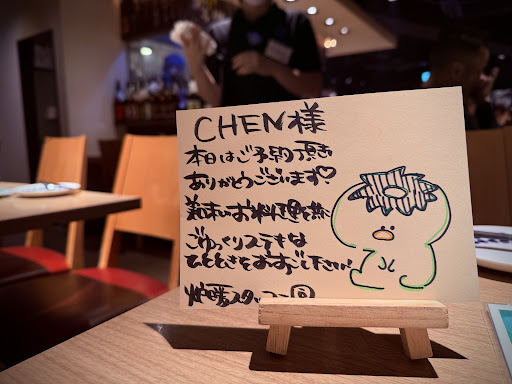 CHEN様
本日はご予約頂き
ありがとうございます!
美味しいお料理と共に
ごゆっくりステキな
ひとときをおすごし下さい!
スタッフ一同